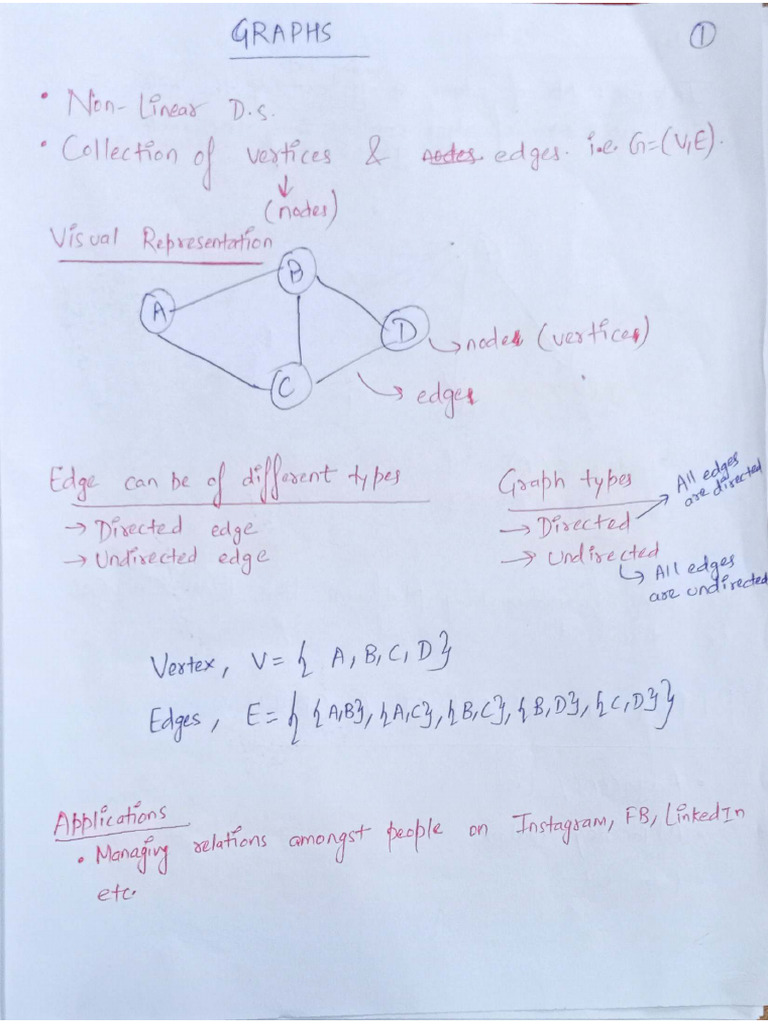 GRAPHS
1
• Non-Linear D.S.
• Collection of vertices & nodes edges. i.e. G=(V,E).
↓
(nodes)
Visual Representation
B
A
D
→ nodes (vertices)
C
→ edges
Edge can be of different types
→ Directed edge
→ Undirected edge
Graph types
→ Directed → All edges
are directed
→ Undirected
↳ All edges
are undirected
Vertex, V = { A, B, C, D }
Edges, E = { {A,B}, {A,C}, {B,C}, {B,D}, {C,D} }
Applications
• Managing relations amongst people on Instagram, FB, LinkedIn
etc.